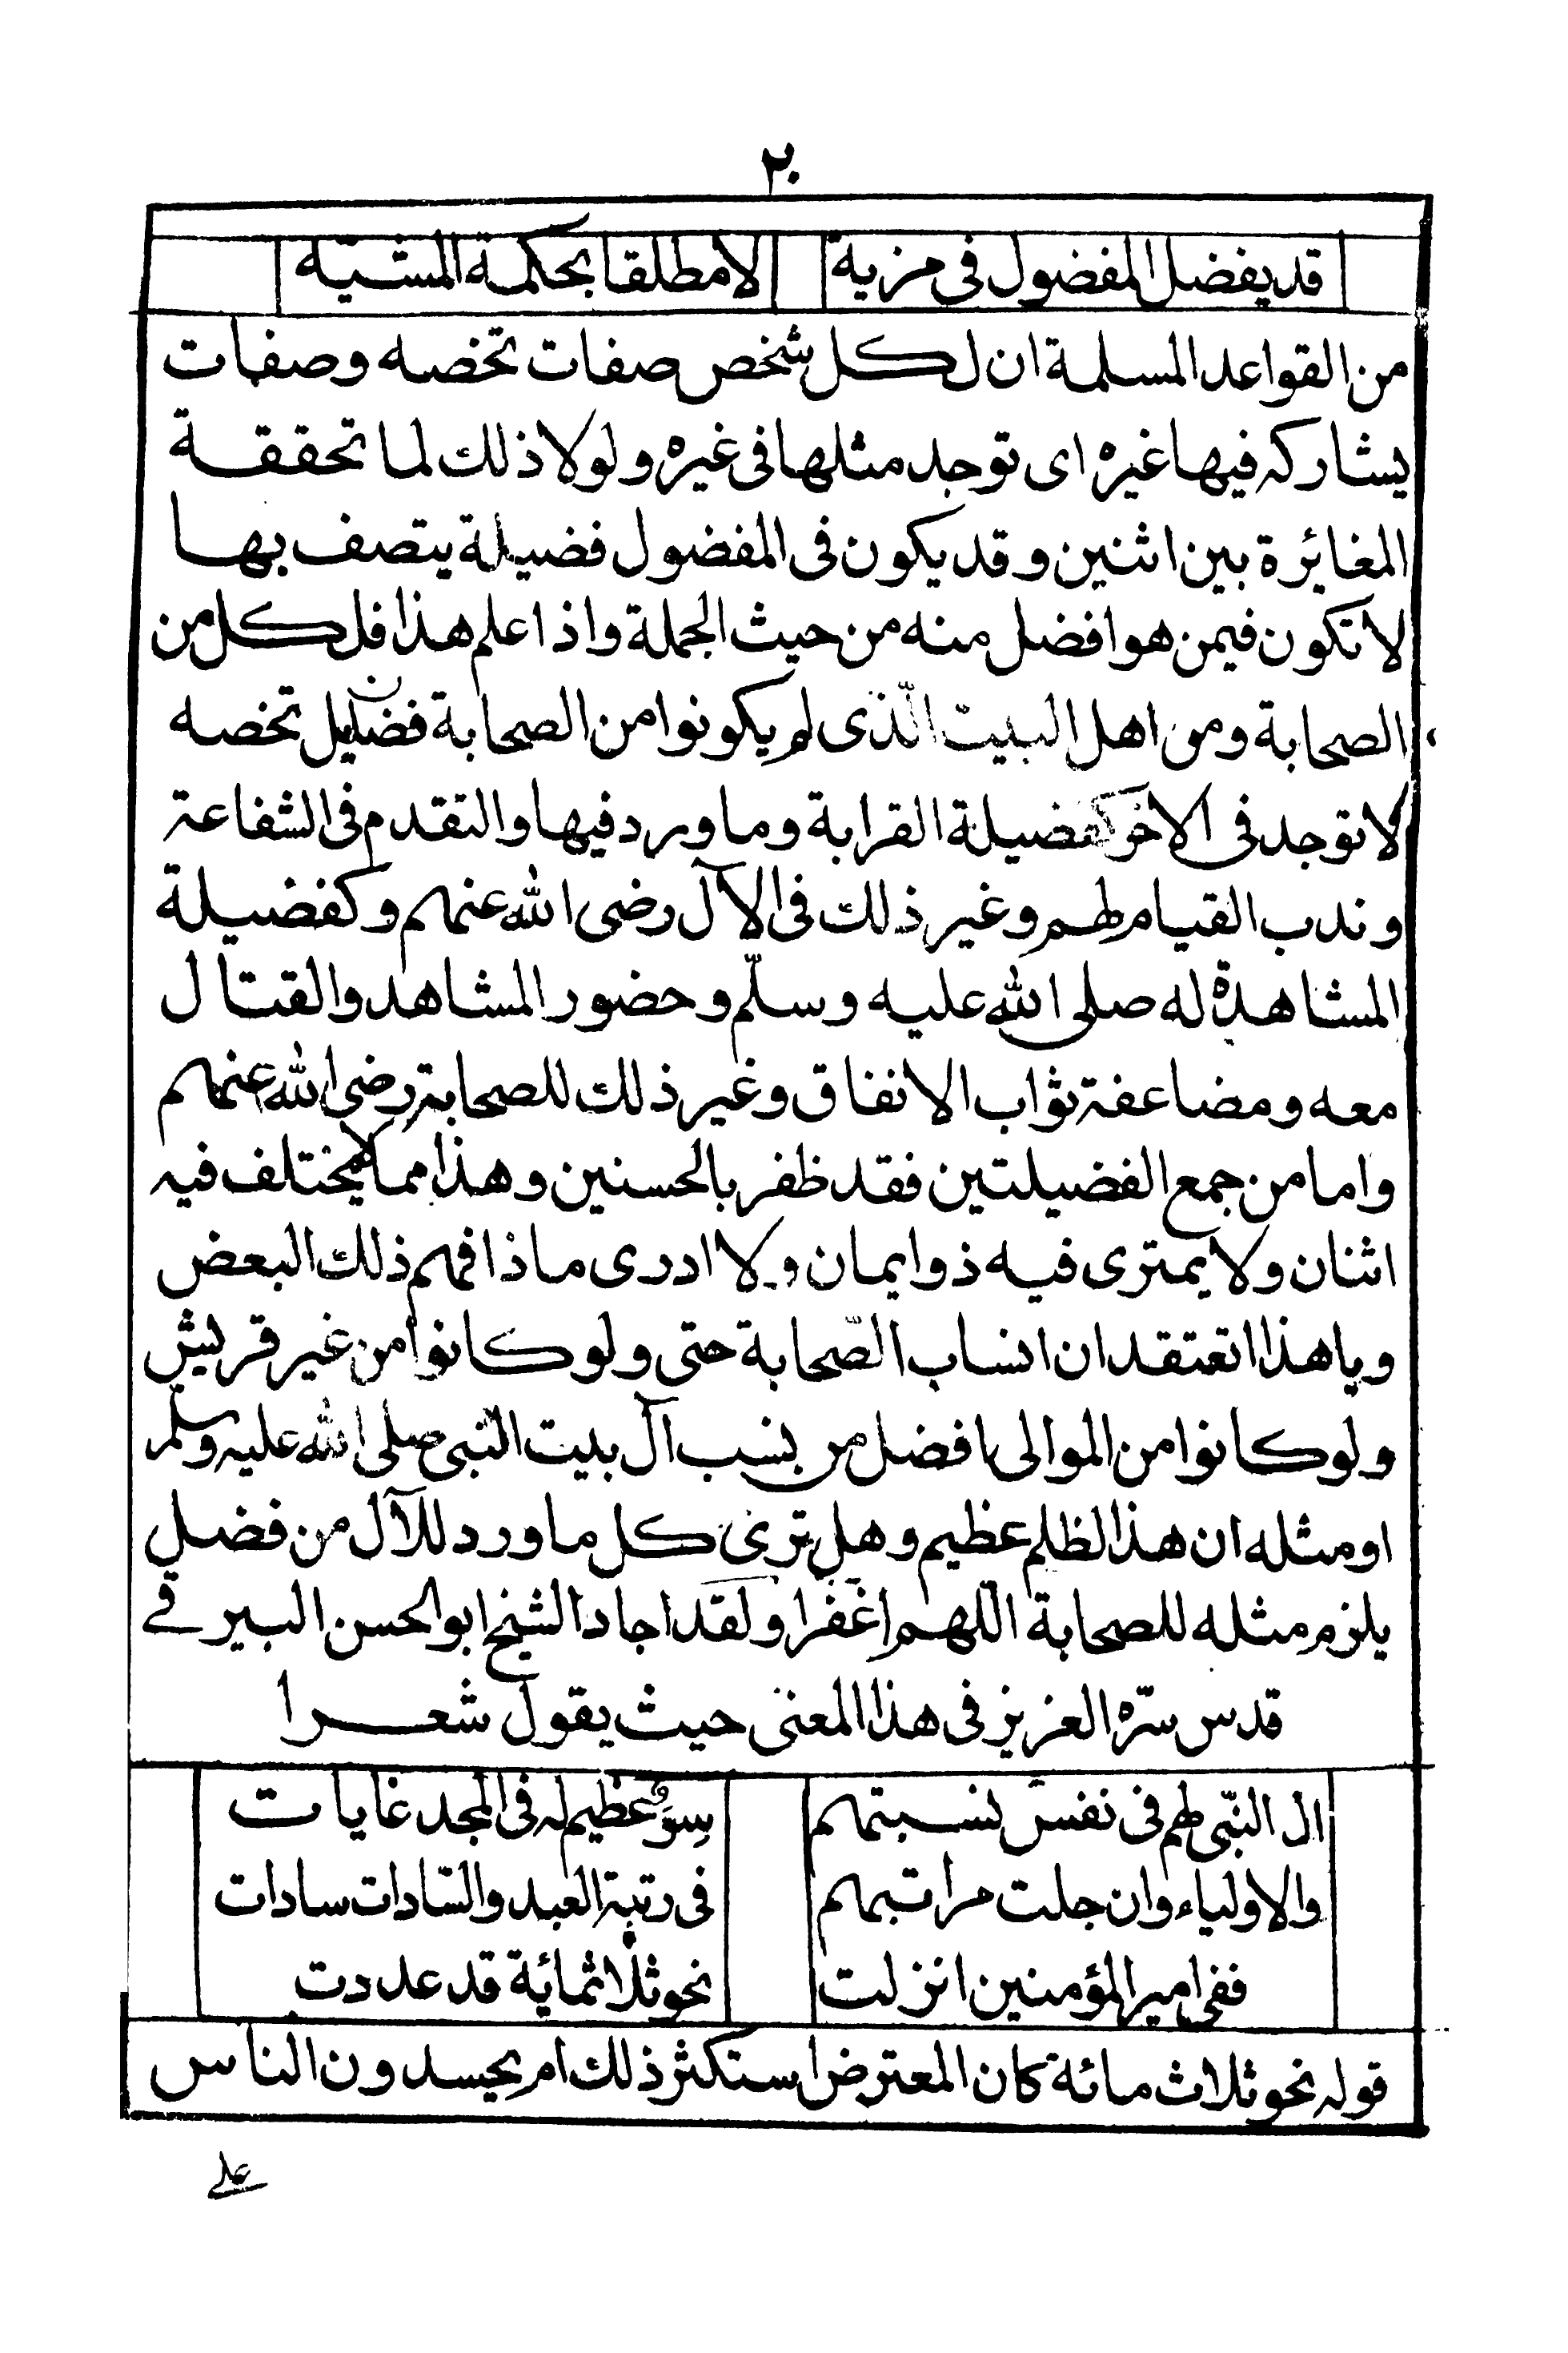 ٢٠
قد يفضل المفضول فى مزية لا مطلقا بحكمة المشية
من القواعد المسلمة ان لكل شخص صفات تخصه وصفات
يشاركه فيها غيره اى توجد مثلها فى غيره ولولا ذلك لما تحققة
المغائرة بين اثنين وقد يكون فى المفضول فضيلة يتصف بها
لا تكون فيمن هو افضل منه من حيث الجملة واذا علم هذا فلكل من
الصحابة ومن اهل البيت الّذى لم يكونوا من الصحابة فضايل تخصه
لا توجد فى الاخر كفضيلة القرابة وما ورد فيها والتقدم فى الشفاعة
وندب القيام لهم وغير ذلك فى الآل رضى الله عنهم وكفضيلة
المشاهدة له صلى الله عليه وسلّم وحضور المشاهد والقتال
معه ومضاعفة ثواب الانفاق وغير ذلك للصحابة رضى الله عنهم
واما من جمع الفضيلتين فقد ظفر بالحسنين وهذا مما لا يختلف فيه
اثنان ولا يمترى فيه ذو ايمان ولا ادرى ماذا فهم ذلك البعض
ويا هذا اتعتقد ان انساب الصّحابة حتى ولو كانوا من غير قريش
ولو كانوا من الموالى افضل من نسب آل بيت النبى صلى الله عليه وسلم
او مثله ان هذا لظلم عظيم وهل ترى كل ما ورد للآل من فضل
يلزم مثله للصحابة اللّهم اغفرا ولقد اجاد الشيخ ابو الحسن البير فى
قدس سرّه العزيز فى هذا المعنى حيث يقول شعرا
ال النبّى لهم فى نفس نسبتهم سرٌ عظيم له فى المجد غايات
والاولياء وان جلت مراتبهم فى رتبة العبد والسّادات سادات
ففى امير المؤمنين انزلت نحو ثلاثمائة قد عددت
قوله نحو ثلاث مائة كان المعترض استكثر ذلك ام يحسدون الناس
على